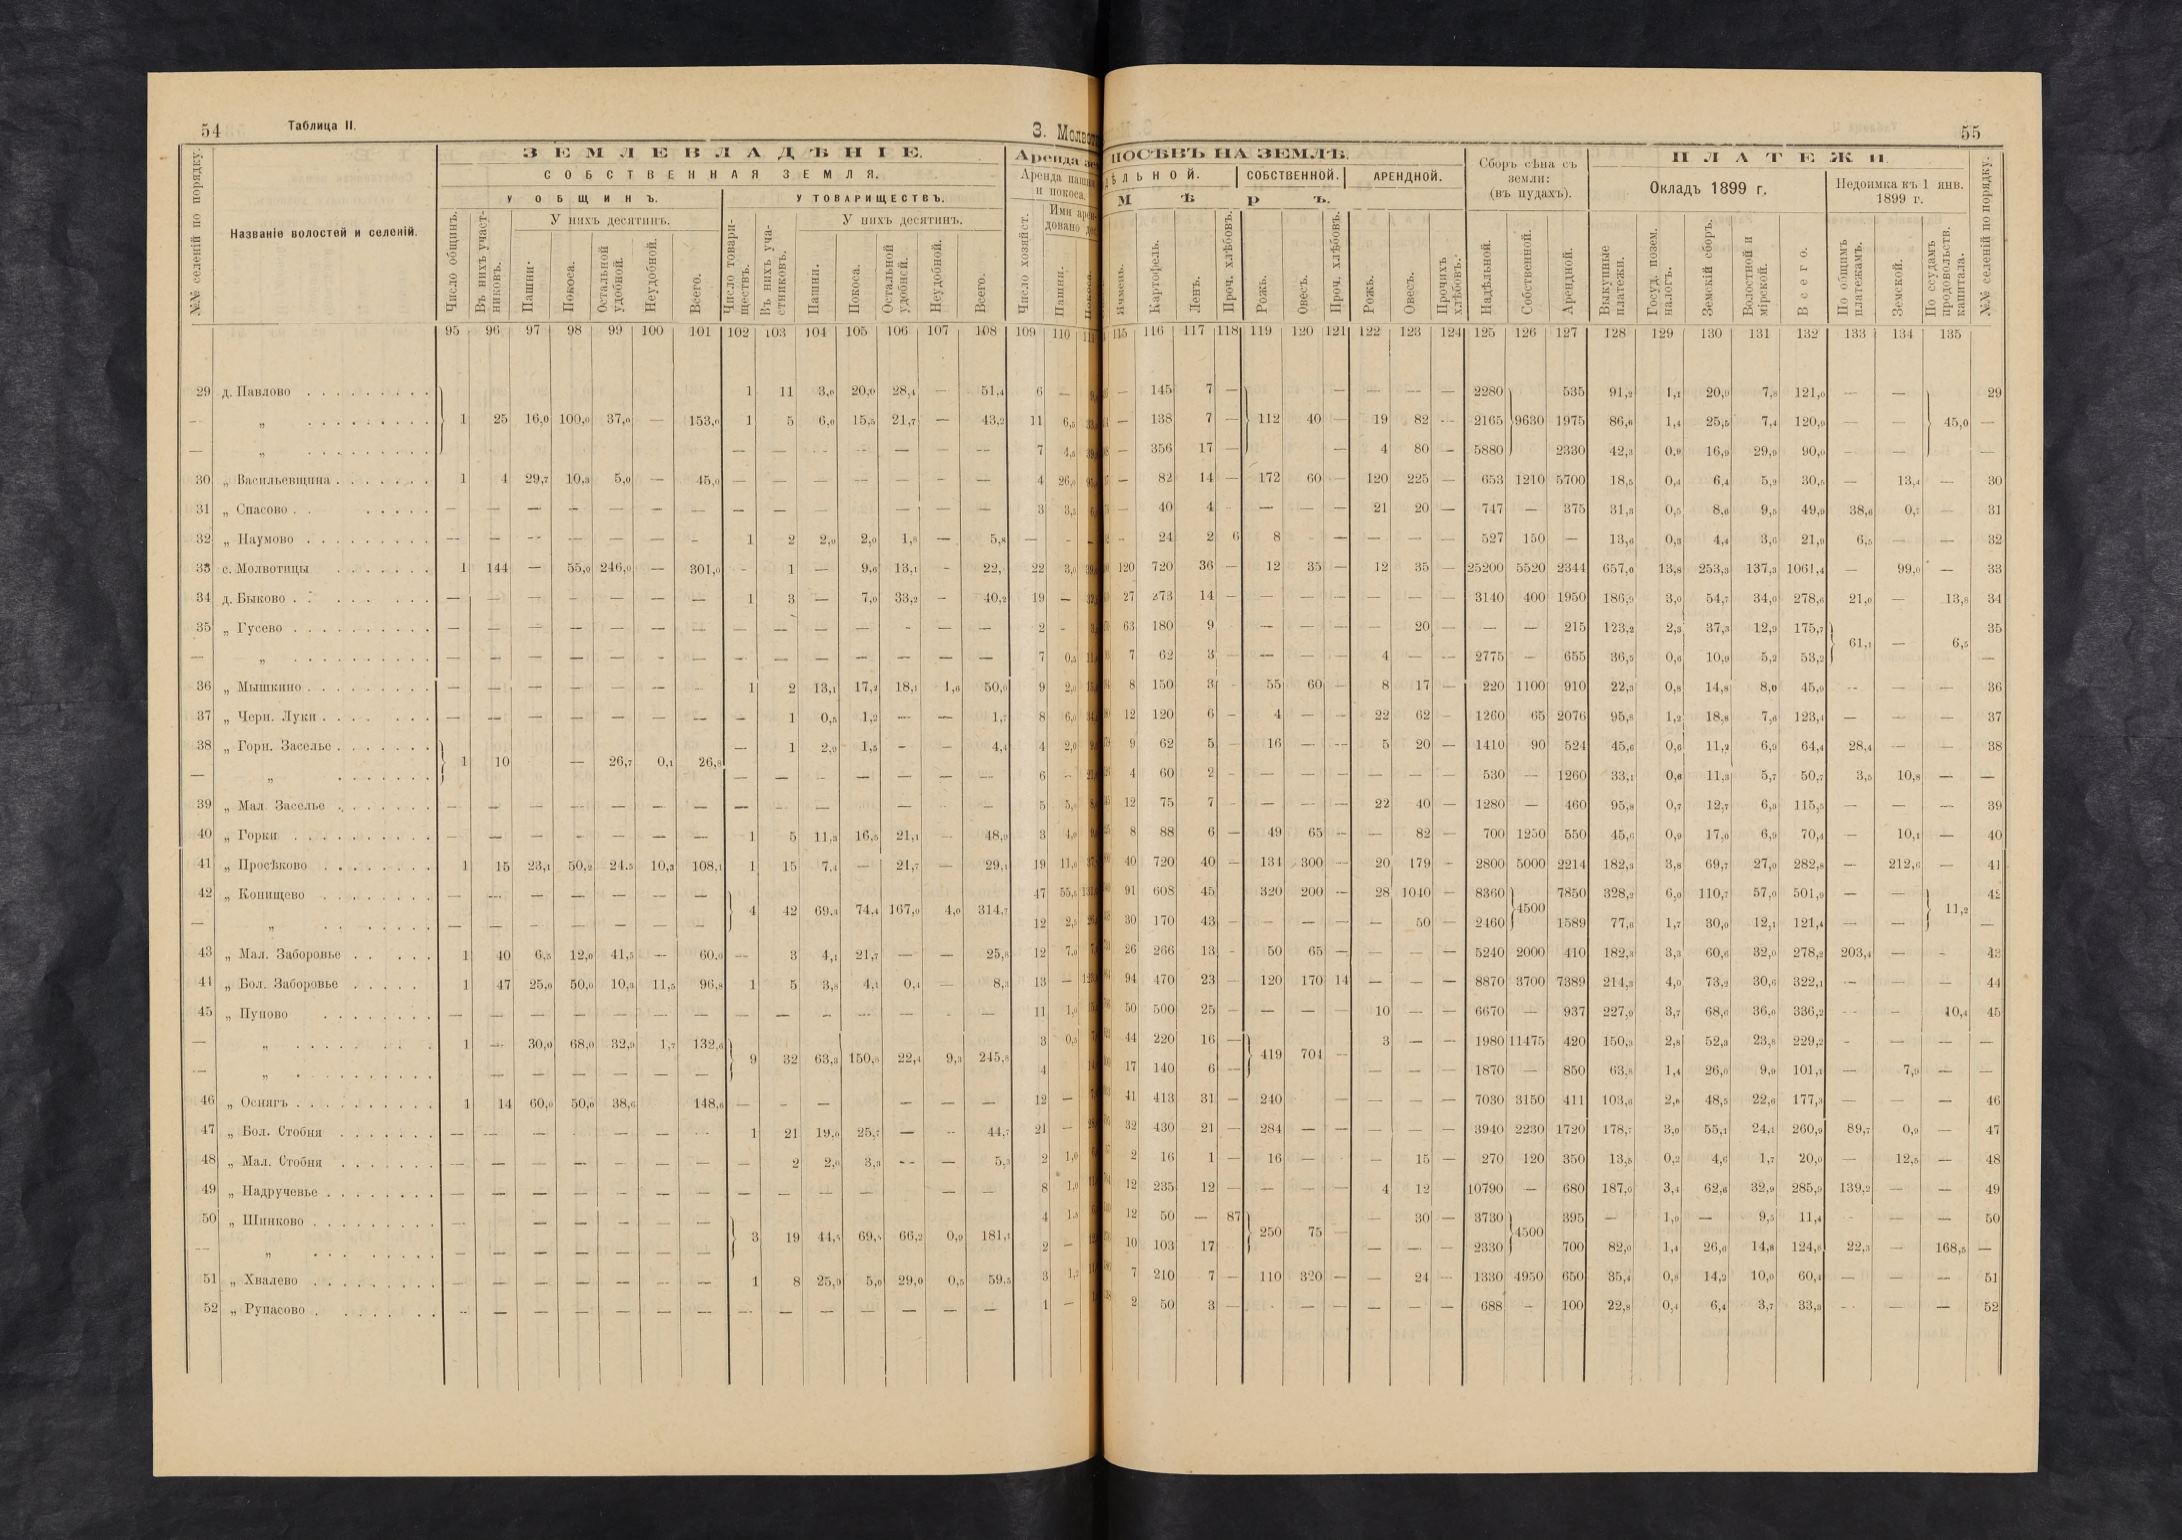 54
Таблица II.
З. Молвот
55
№№ селеній по порядку.
Названіе волостей и селеній.
ЗЕМЛЕВЛАДѢНІЕ.
СОБСТВЕННАЯ ЗЕМЛЯ.
У ОБЩИНЪ.
У ТОВАРИЩЕСТВЪ.
Число общинъ.
Въ нихъ участниковъ.
У нихъ десятинъ.
Пашни.
Покоса.
Остальной удобной.
Неудобной.
Всего.
Число товариществъ.
Въ нихъ участниковъ.
У нихъ десятинъ.
Пашни.
Покоса.
Остальной удобной.
Неудобной.
Всего.
Аренда
Аренда
и покоса.
Число хозяйст.
Ими
довано
Пашни.
ПОСѢВЪ НА ЗЕМЛѢ.
ДѢЛЬНОЙ.
СОБСТВЕННОЙ.
АРЕНДНОЙ.
М Ѣ Р Ъ.
Ячмень.
Картофель.
Ленъ.
Проч. хлѣбовъ.
Рожь.
Овесъ.
Проч. хлѣбовъ.
Рожь.
Овесъ.
Прочихъ хлѣбовъ.
Сборъ сѣна съ земли: (въ пудахъ).
Надѣльной.
Собственной.
Арендной.
ПЛАТЕЖИ.
Окладъ 1899 г.
Выкупные платежи.
Госуд. позем. налогъ.
Земскій сборъ.
Волостной и мірской.
Всего.
Недоимка къ 1 янв. 1899 г.
По общимъ платежамъ.
Земской.
По ссудамъ продовольств. капитала.
№№ селеній по порядку.
95 96 97 98 99 100 101 102 103 104 105 106 107 108 109 110 115 116 117 118 119 120 121 122 123 124 125 126 127 128 129 130 131 132 133 134 135
29 д. Павлово 1 11 3,0 20,0 28,4 — 51,4 6 — — 145 7 — — — — — 2280 535 91,2 1,1 20,9 7,8 121,0 — — 29
— „ 1 25 16,0 100,0 37,0 — 153,0 1 5 6,0 15,5 21,7 — 43,2 11 6,5 — 138 7 — 112 40 — 19 82 — 2165 9630 1975 86,6 1,4 25,5 7,4 120,9 — — 45,0 —
— „ — — — — — — — 7 4,5 — 356 17 — — 4 80 — 5880 2330 42,3 0,9 16,9 29,9 90,0 — — —
30 „ Васильевщина 1 4 29,7 10,3 5,0 — 45,0 — — — — — — — 4 26,0 — 82 14 — 172 60 — 120 225 — 653 1210 5700 18,5 0,4 6,4 5,2 30,5 — 13,4 — 30
31 „ Спасово — — — — — — — — — — — — — 3 3,5 — 40 4 — — — 21 20 — 747 — 375 31,3 0,5 8,6 9,5 49,9 38,6 — 31
32 „ Наумово — — — — — — — 1 2 2,0 2,0 1,8 — 5,8 — — 24 2 6 8 — — — — 527 150 — 13,6 0,3 4,4 3,6 21,9 6,5 — — 32
33 с. Молвотицы 1 144 — 55,0 246,0 — 301,0 — 1 — 9,6 13,1 — 22, 22 3,0 120 720 36 — 12 35 — 12 35 — 25200 5520 2344 657,0 13,8 253,3 137,3 1061,4 — 99,0 — 33
34 д. Быково — — — — — — — 1 3 — 7,0 33,2 — 40,2 19 — 27 273 14 — — — — — — — 3140 400 1950 186,9 3,0 54,7 34,0 278,6 21,0 — 13,8 34
35 „ Гусево — — — — — — — — — — — — — — 2 — 63 180 9 — — — — 20 — — — 215 123,2 2,3 37,3 12,9 175,7 61,1 — 6,5 35
— „ — — — — — — — — — — — — — — 7 0,5 7 62 3 — — — — 4 — — 2775 — 655 36,5 0,6 10,9 5,2 53,2 —
36 „ Мышкино — — — — — — — 1 2 13,1 17,2 18,1 1,6 50,0 9 2,0 8 150 3 — 55 60 — 8 17 — 220 1100 910 22,3 0,8 14,8 8,0 45,9 — — — 36
37 „ Черн. Луки — — — — — — — — 1 0,5 1,2 — — 1,7 8 6,0 12 120 6 — 4 — — 22 62 — 1260 65 2076 95,8 1,2 18,8 7,6 123,4 — — — 37
38 „ Горн. Заселье 1 10 — 26,7 0,1 26,8 — 1 2,9 1,5 — — 4,4 4 2,0 9 62 5 — 16 — — 5 20 — 1410 90 524 45,6 0,6 11,2 6,9 64,4 28,4 — — 38
— „ — — — — — — — 6 — 4 60 2 — — — — — — — 530 — 1260 33,1 0,6 11,3 5,7 50,7 3,5 10,8 — —
39 „ Мал. Заселье — — — — — — — — — — — — — 5 5, 12 75 7 — — — — 22 40 — 1280 — 460 95,8 0,7 12,7 6,3 115,5 — — — 39
40 „ Горки — — — — — — — 1 5 11,3 16,5 21,1 — 48,9 3 4,0 8 88 6 — 49 65 — — 82 — 700 1250 550 45,6 0,9 17,0 6,9 70,4 — 10,1 — 40
41 „ Просѣково 1 15 23,1 50,2 24,5 10,3 108,1 1 15 7,4 — 21,7 — 29,1 19 11,0 40 720 40 — 134 300 — 20 179 — 2800 5000 2214 182,3 3,8 69,7 27,0 282,8 — 212,6 — 41
42 „ Конищево — — — — — — — 4 42 69,3 74,4 167,0 4,0 314,7 47 55,5 91 608 45 320 200 — 28 1040 — 8360 4500 7850 328,2 6,0 110,7 57,0 501,9 — — 11,2 42
— „ — — — — — — — 12 2,5 30 170 43 — — — — — 50 — 2460 1589 77,6 1,7 30,0 12,1 121,4 — — —
43 „ Мал. Заборовье 1 40 6,5 12,0 41,5 — 60,0 — 3 4,1 21,7 — — 25,8 12 7,0 26 266 13 — 50 65 — — — — 5240 2000 410 182,3 3,3 60,6 32,0 278,2 203,4 — — 43
44 „ Бол. Заборовье 1 47 25,0 50,0 10,3 11,5 96,8 1 5 3,8 4,1 0,4 — 8,3 13 — 94 470 23 — 120 170 14 — — — 8870 3700 7389 214,3 4,0 73,2 30,6 322,1 — — — 44
45 „ Пуново — — — — — — — — — — — — — — 11 1,0 50 500 25 — — — — 10 — — 6670 — 937 227,9 3,7 68,6 36,0 336,2 — — 10,4 45
— „ 1 — 30,0 68,0 32,9 1,7 132,6 9 32 63,3 150,8 22,4 9,3 245,8 3 0,5 44 220 16 — 419 704 — 3 — — 1980 11475 420 150,3 2,8 52,3 23,8 229,2 — — — —
— „ — — — — — — 4 17 140 6 — — — — 1870 — 850 63,8 1,4 26,0 9,9 101,1 — 7,9 — —
46 „ Оснягъ 1 14 60,0 50,0 38,6 148,6 — — — — — — — 12 — 41 413 31 — 240 — — — 7030 3150 411 103,6 2,6 48,5 22,6 177,3 — — — 46
47 „ Бол. Стобня — — — — — — — 1 21 19,0 25,7 — — 44,7 21 — 32 430 21 — 284 — — — — — 3940 2230 1720 178,7 3,0 55,1 24,1 260,9 89,7 0,9 — 47
48 „ Мал. Стобня — — — — — — — — 2 2,0 3,3 — — 5,3 2 1,0 2 16 1 — 16 — — 15 — 270 120 350 13,5 0,2 4,6 1,7 20,0 — 12,5 — 48
49 „ Надручевье — — — — — — — — — — — — — 8 1,0 12 235 12 — — — — 4 12 10790 — 680 187,0 3,4 62,6 32,9 285,9 139,2 — — 49
50 „ Шинково — — — — — — 3 19 44,5 69,5 66,2 0,9 181,1 4 12 50 — 87 250 75 — — 30 — 3730 4500 395 — 1,9 — 9,5 11,4 — — — 50
— „ — — — — — — 2 — 10 103 17 — — — 2330 700 82,0 1,4 26,6 14,8 124,6 22,3 — 168,5 —
51 „ Хвалево — — — — — — — 1 8 25,0 5,0 29,0 0,5 59,5 3 7 210 7 — 110 320 — — 24 — 1330 4950 650 35,4 0,8 14,2 10,0 60,4 — — — 51
52 „ Рупасово — — — — — — — — — — — — — — 1 — 2 50 3 — — — — — — — 688 — 100 22,8 0,4 6,4 3,7 33,3 — — — 52